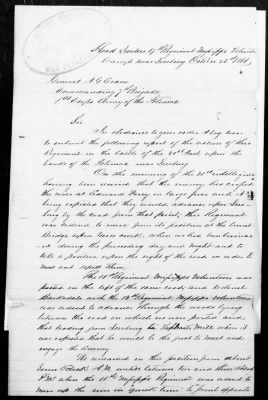 Head Quarters 17th Regiment Miss
Camp near Leesburg October 25th 1861
General N G Evans
Commanding 7th Brigade
1st Corps Army of the Potomac
Sir
In obedience to your order I beg leave
to submit the following report of the action of this
Regiment in the battle of the 21st inst upon the
banks of the Potomac near Leesburg
On the morning of the 21st
having been received that the enemy had crossed
the river at Edwards Ferry in large force and it
being expected that they would advance upon Lees
burg by the road from that point, this Regiment
was ordered to move from its position at the burnt
Bridge upon Goose creek, where we had
during the preceding day and night and to
take a position upon the right of the road in order to
meet and repel them.
The 18th Regiment Volunteers was
posted on the left of the same road and Colonel
Barksdale and the 13th Regiment Volunteers
was ordered to advance through the woods lying
between the road on which we were posted and
that leading from Leesburg to Mill where it
was expected that he would be the first to meet and
engage the Enemy
We remained in this position from about
Seven O'clock A.M. until between two and three O'clock
P.M. when the 18th Regiment was ordered to